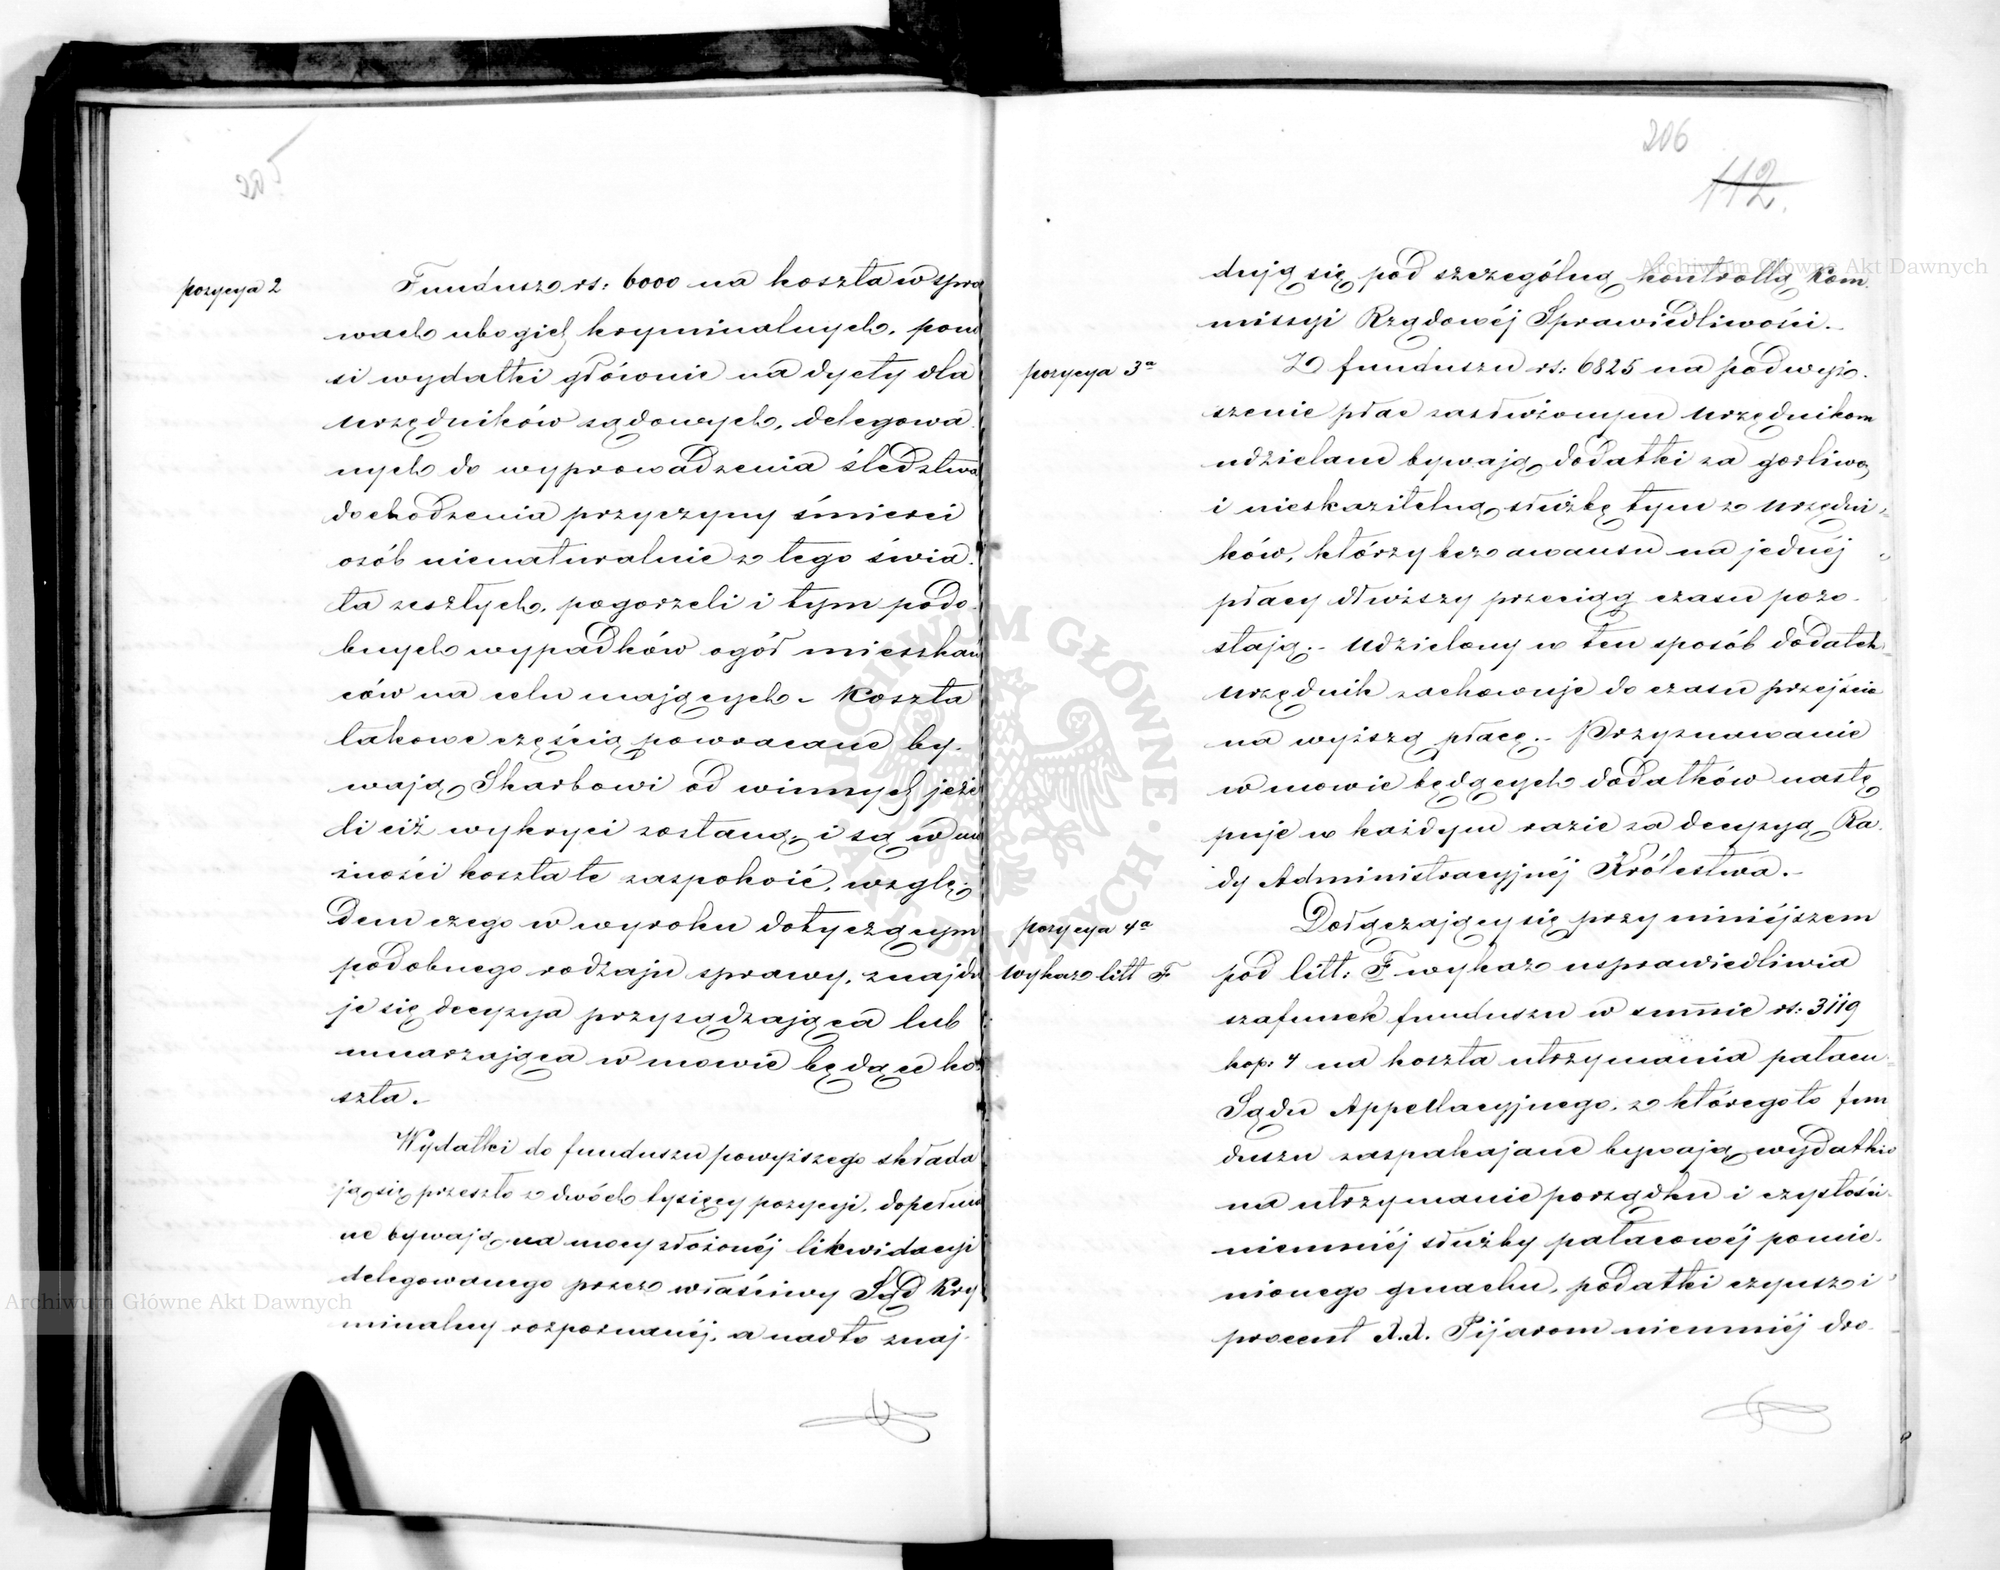 205
pozycya 2
Fundusz rs: 6000 na koszta w spra
wach ubogich kryminalnych, pono
si wydatki głównie na dyety dla
urzędników sądowych, delegowa
nych do wyprowadzenia śledztwa
dochodzenia przyczyny śmierci
osób nienaturalnie z tego świa.
ta zeszłych, pogorzeli i tym podo.
bnych wypadków ogół mieszkań
ców na celu mających – Koszta
takowe częścią powracane by.
wają Skarbowi od winnych jeże
li ciż wykryci zostaną, i są w mo
żności koszta te zaspokoić, wzglę.
dem czego w wyroku dotyczącym
podobnego rodzaju sprawy, znajdu
je się decyzya przysądzająca lub
umarzająca w mowie będące ko
szta.
Wydatki do funduszu powyższego składa
ją się przeszło z dwóch tysięcy pozycyi, dopełnia
ne bywają na mocy złożonéj likwidacyi
delegowanego przez właściwy Sąd Kry
minalny rozpoznanéj, a nadto znaj-
206
112.
dują się pod szczególną kontrollą Kom.
missyi Rządowéj Sprawiedliwości.–
pozycya 3a
Z funduszu rs: 6825 na podwyż.
szenie płac zasłużonym urzędnikom
udzielane bywają dodatki za gorliwą
i nieskazitelną służbę tym z urzędni
ków, którzy bez awansu na jednéj
płacy dłuższy przeciąg czasu pozo.
stają.- Udzielony w ten sposób dodatek
urzędnik zachowuje do czasu przejścia
na wyższą płacę.- Przyznawanie
w mowie będących dodatków nastę
puje w każdym razie za decyzyą Ra.
dy Administracyjnéj Królestwa.–
pozycya 4a
Dołączający się przy niniéjszem
wykaz litt F
pod litt: F wykaz usprawiedliwia
szafunek funduszu w summie rs: 3119
kop: 4 na koszta utrzymania pałacu
Sądu Appellacyjnego, z którego to fun
duszu zaspakajane bywają wydatki
na utrzymanie porządku i czystości
niemniéj służby pałacowéj pomie.
nionego gmachu, podatki czynsz i
procent X.X. Pijarom niemniéj dro.
Archiwum Główne Akt Dawnych
Archiwum Główne Akt Dawnych
ARCHIWUM GŁÓWNE AKT DAWNYCH